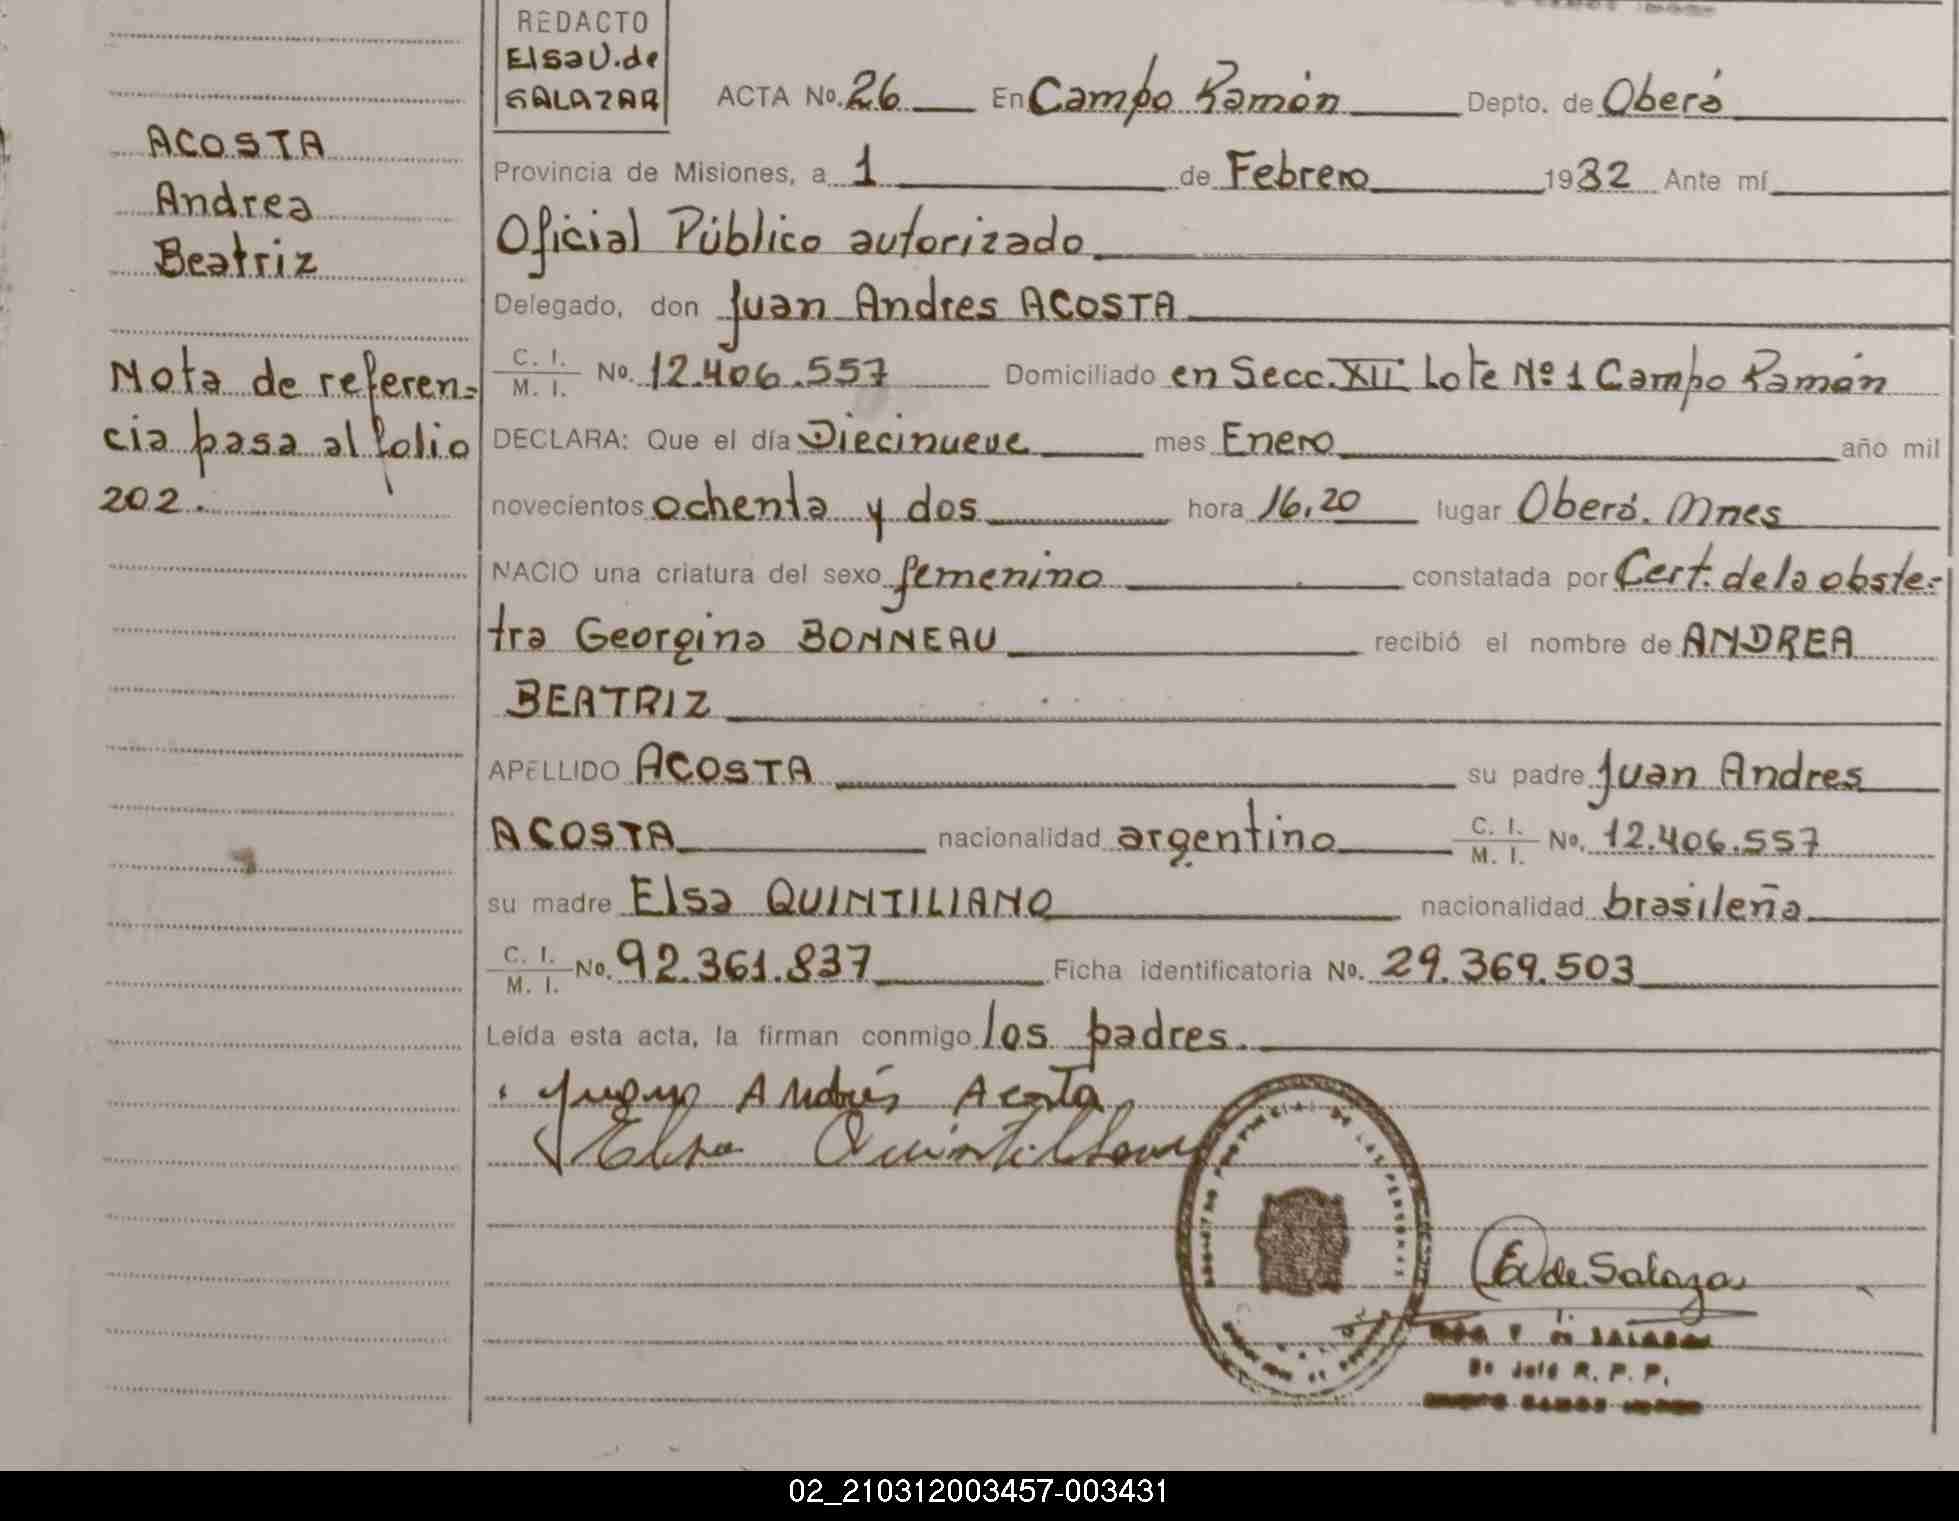 REDACTO
Elsa U. de
SALAZAR
ACTA No. 26 En Campo Ramón Depto. de Oberá
ACOSTA
Andrea
Beatriz
Nota de referen-
cia pasa al folio
202.
Provincia de Misiones, a 1 de Febrero 1982 Ante mí
Oficial Público autorizado
Delegado, don Juan Andres ACOSTA
C. I. / M. I. No. 12.406.557 Domiciliado en Secc. XII Lote Nº 1 Campo Ramón
DECLARA: Que el día Diecinueve mes Enero año mil
novecientos ochenta y dos hora 16,20 lugar Oberá. Mnes
NACIO una criatura del sexo femenino constatada por Cert. de la obste-
tra Georgina BONNEAU recibió el nombre de ANDREA
BEATRIZ
APELLIDO ACOSTA su padre Juan Andres
ACOSTA nacionalidad argentino C. I. / M. I. No. 12.406.557
su madre Elsa QUINTILIANO nacionalidad brasileña
C. I. / M. I. No. 92.361.837 Ficha identificatoria No. 29.369.503
Leída esta acta, la firman conmigo los padres.
Juan Andrés Acosta
Elsa Quintiliano
PROVINCIAL DE LAS PERSONAS
E U de Salazar
DE SALAZAR
R. P. P.
02_210312003457-003431